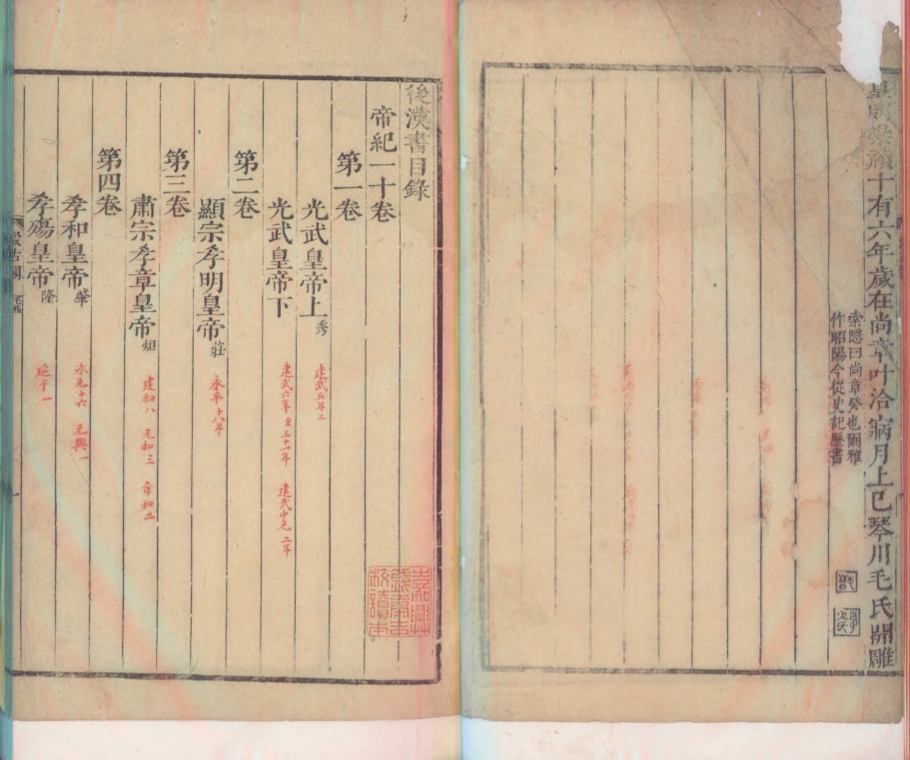 皇明崇禎十有六年歲在尚章叶洽寎月上巳琴川毛氏開雕
索隱曰尚章癸也爾雅
作昭陽今從史記歷書
後漢書目錄
嘉興
錢泰吉
校讀本
帝紀一十卷
第一卷
光武皇帝上秀 建武五年
光武皇帝下 建武六年至三十一年 建武中元二年
第二卷
顯宗孝明皇帝莊 永平十八年
第三卷
肅宗孝章皇帝炟 建初八 元和三 章和二
第四卷
孝和皇帝肇 永元十六 元興一
孝殤皇帝隆 延平一
汲古閣